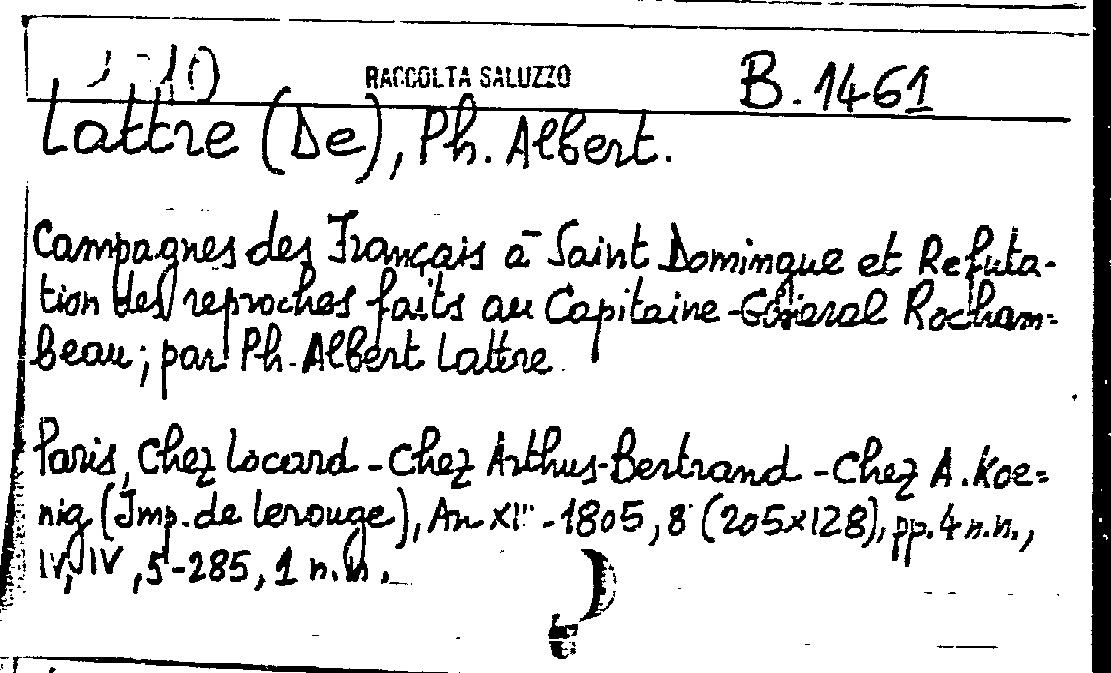 J-10 RACCOLTA SALUZZO B. 1461
Lattre (De), Ph. Albert.
Campagnes des Français à Saint Domingue et Refuta-
tion des reproches faits au Capitaine-Général Rocham=
beau; par Ph. Albert Lattre.
Paris, Chez Locard - Chez Arthus-Bertrand - Chez A. Koe=
nig (Imp. de Lerouge), An XIII - 1805, 8° (205x128), pp. 4 n.n.,
IV, IV, 5-285, 1 n.n.